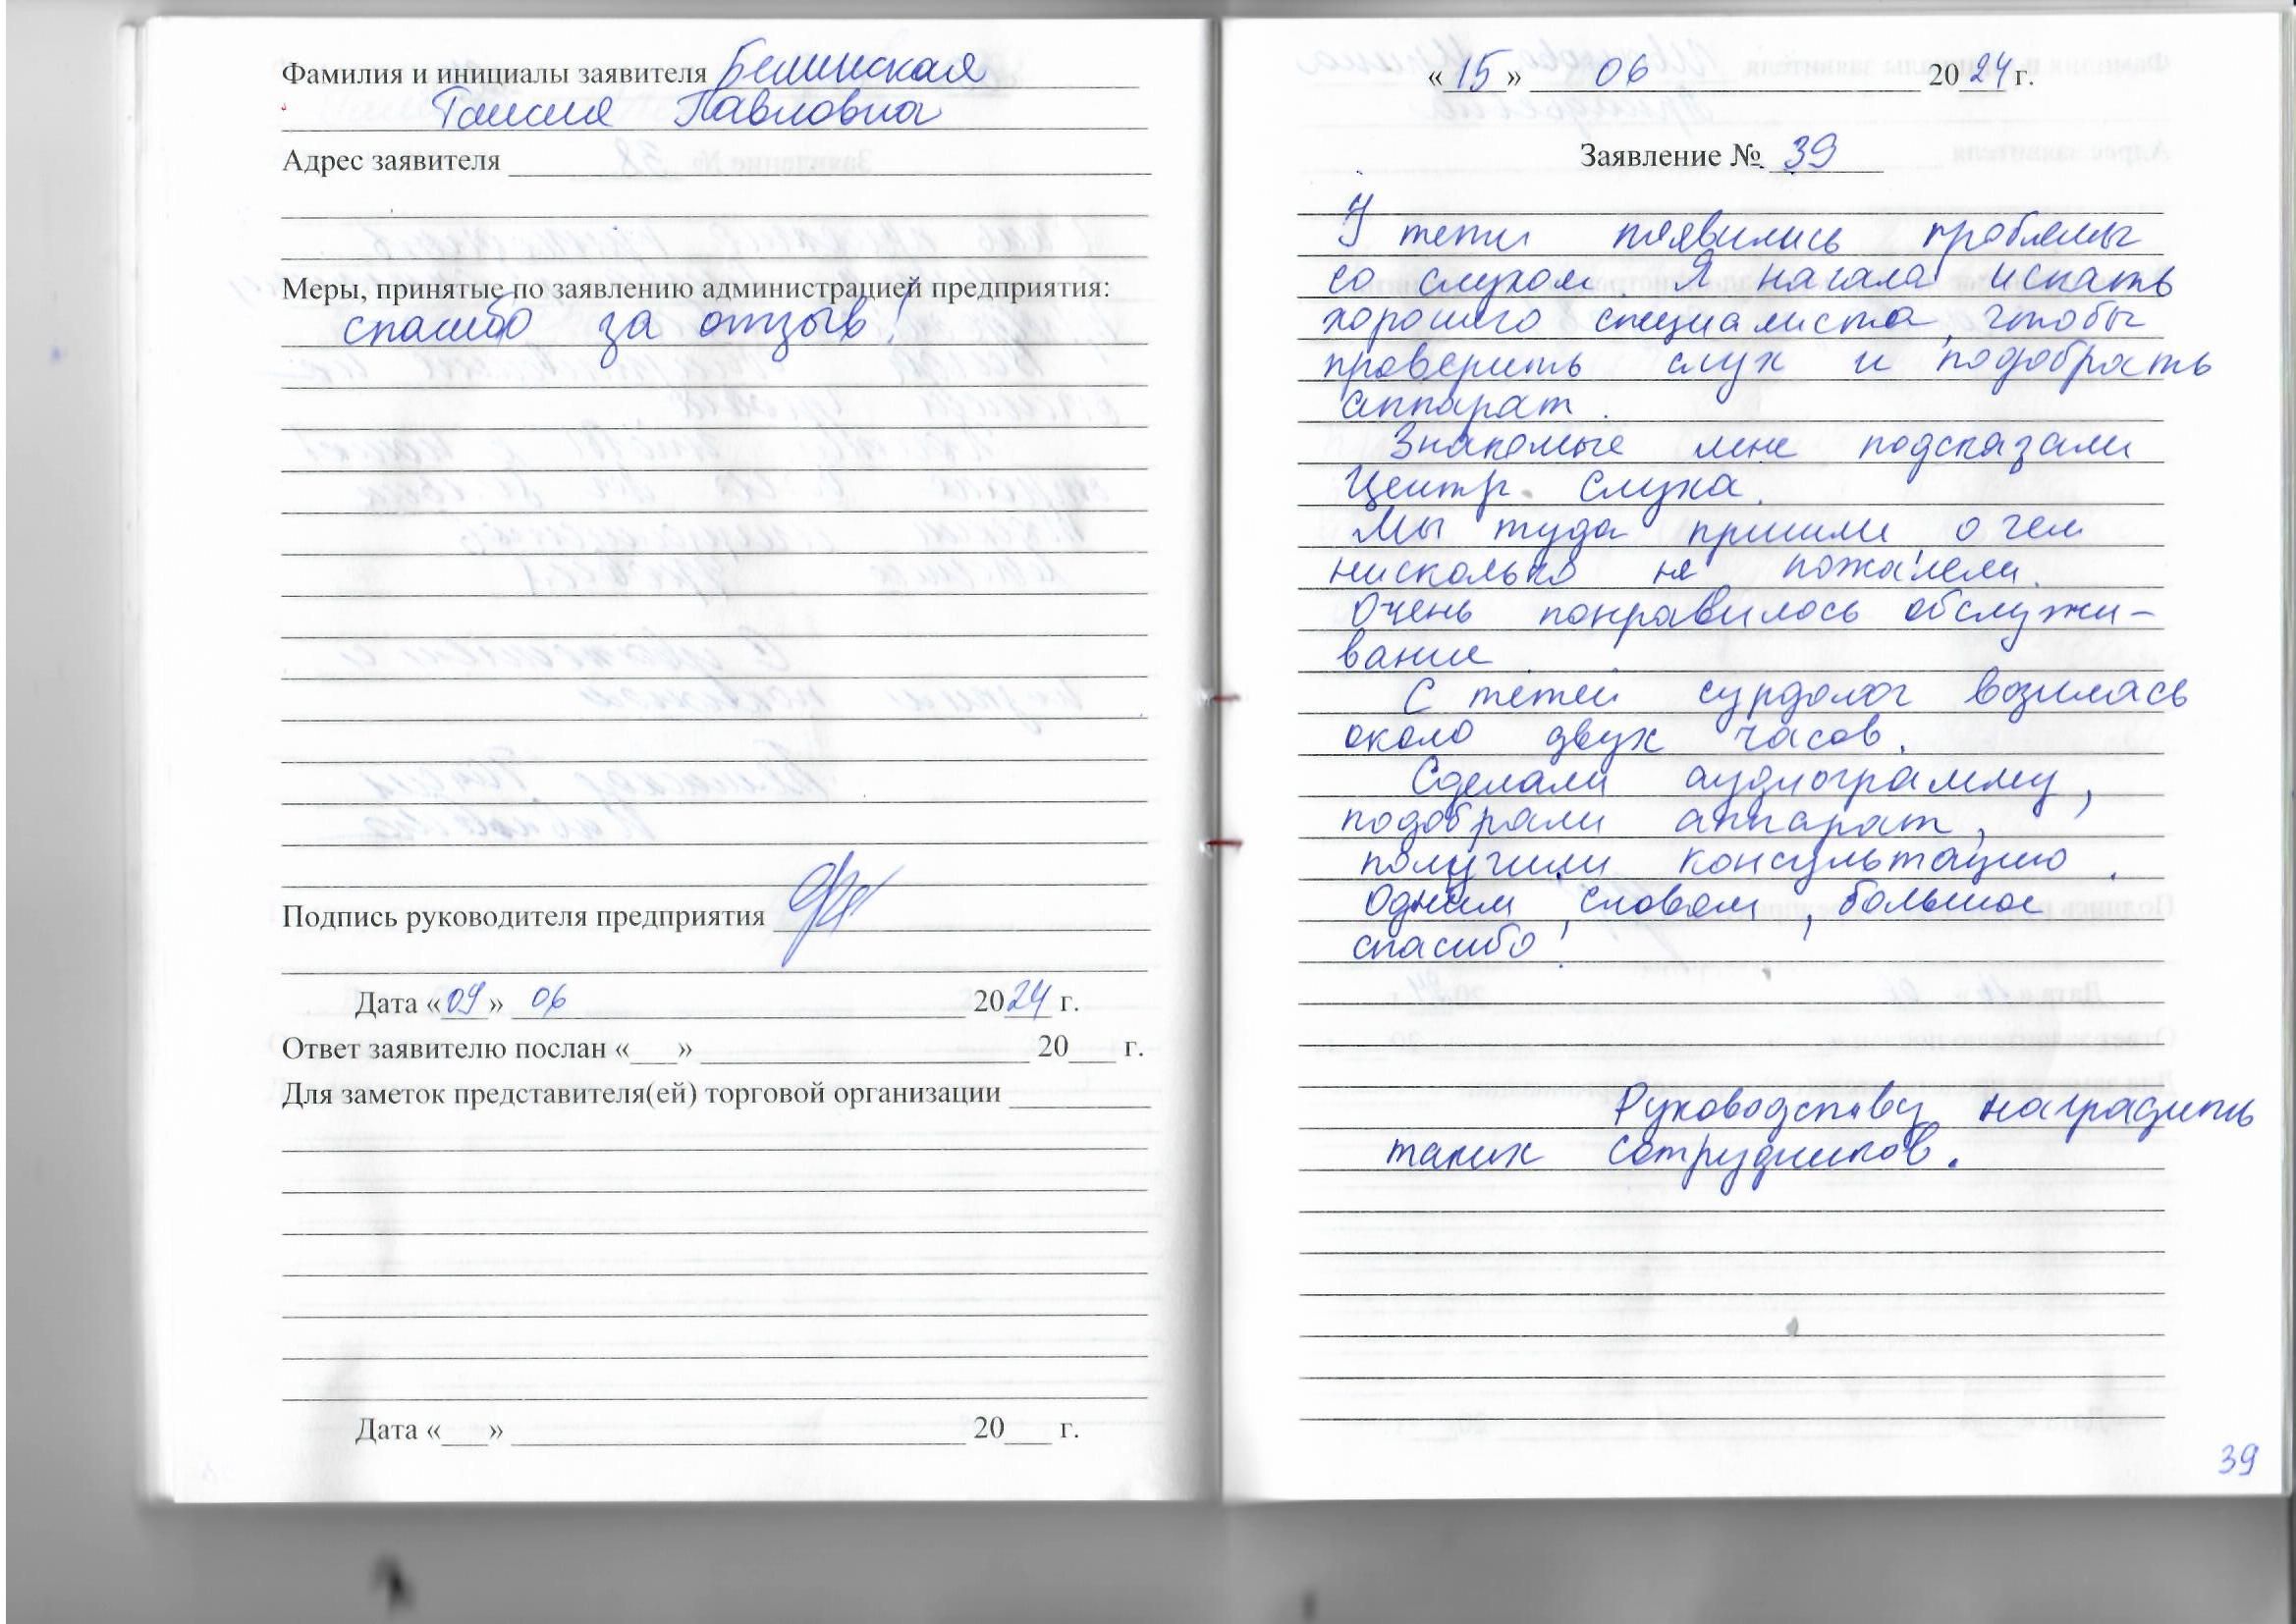 Фамилия и инициалы заявителя Белинская
Таисия Павловна
Адрес заявителя
Меры, принятые по заявлению администрацией предприятия:
спасибо за отзыв!
Подпись руководителя предприятия
Дата «09» 06 2024 г.
Ответ заявителю послан «___» 20___ г.
Для заметок представителя(ей) торговой организации
Дата «___» 20___ г.
«15» 06 2024 г.
Заявление № 39
У тети появились проблемы
со слухом. Я начала искать
хорошего специалиста, чтобы
проверить слух и подобрать
аппарат.
Знакомые мне подсказали
Центр Слуха.
Мы туда пришли о чем
нисколько не пожалели.
Очень понравилось обслужи-
вание.
С тетей сурдолог возилась
около двух часов.
Сделали аудиограмму,
подобрали аппарат,
получили консультацию.
Одним словом, большое
спасибо!
Руководству наградить
таких сотрудников.
39